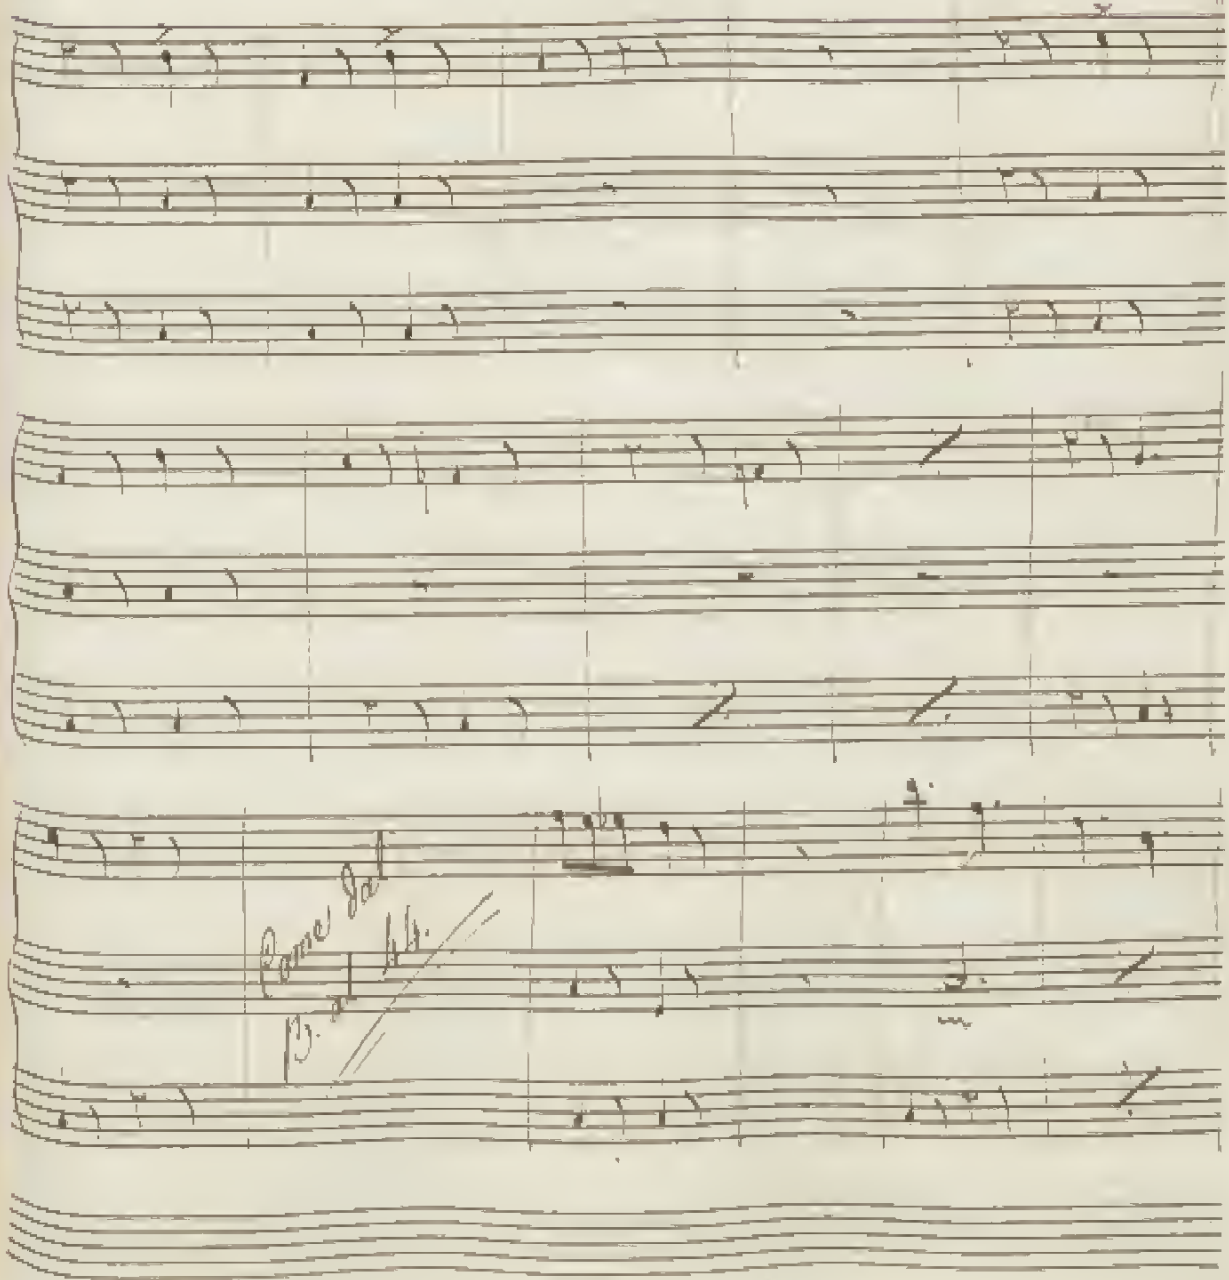 Come dal
B. al 44.